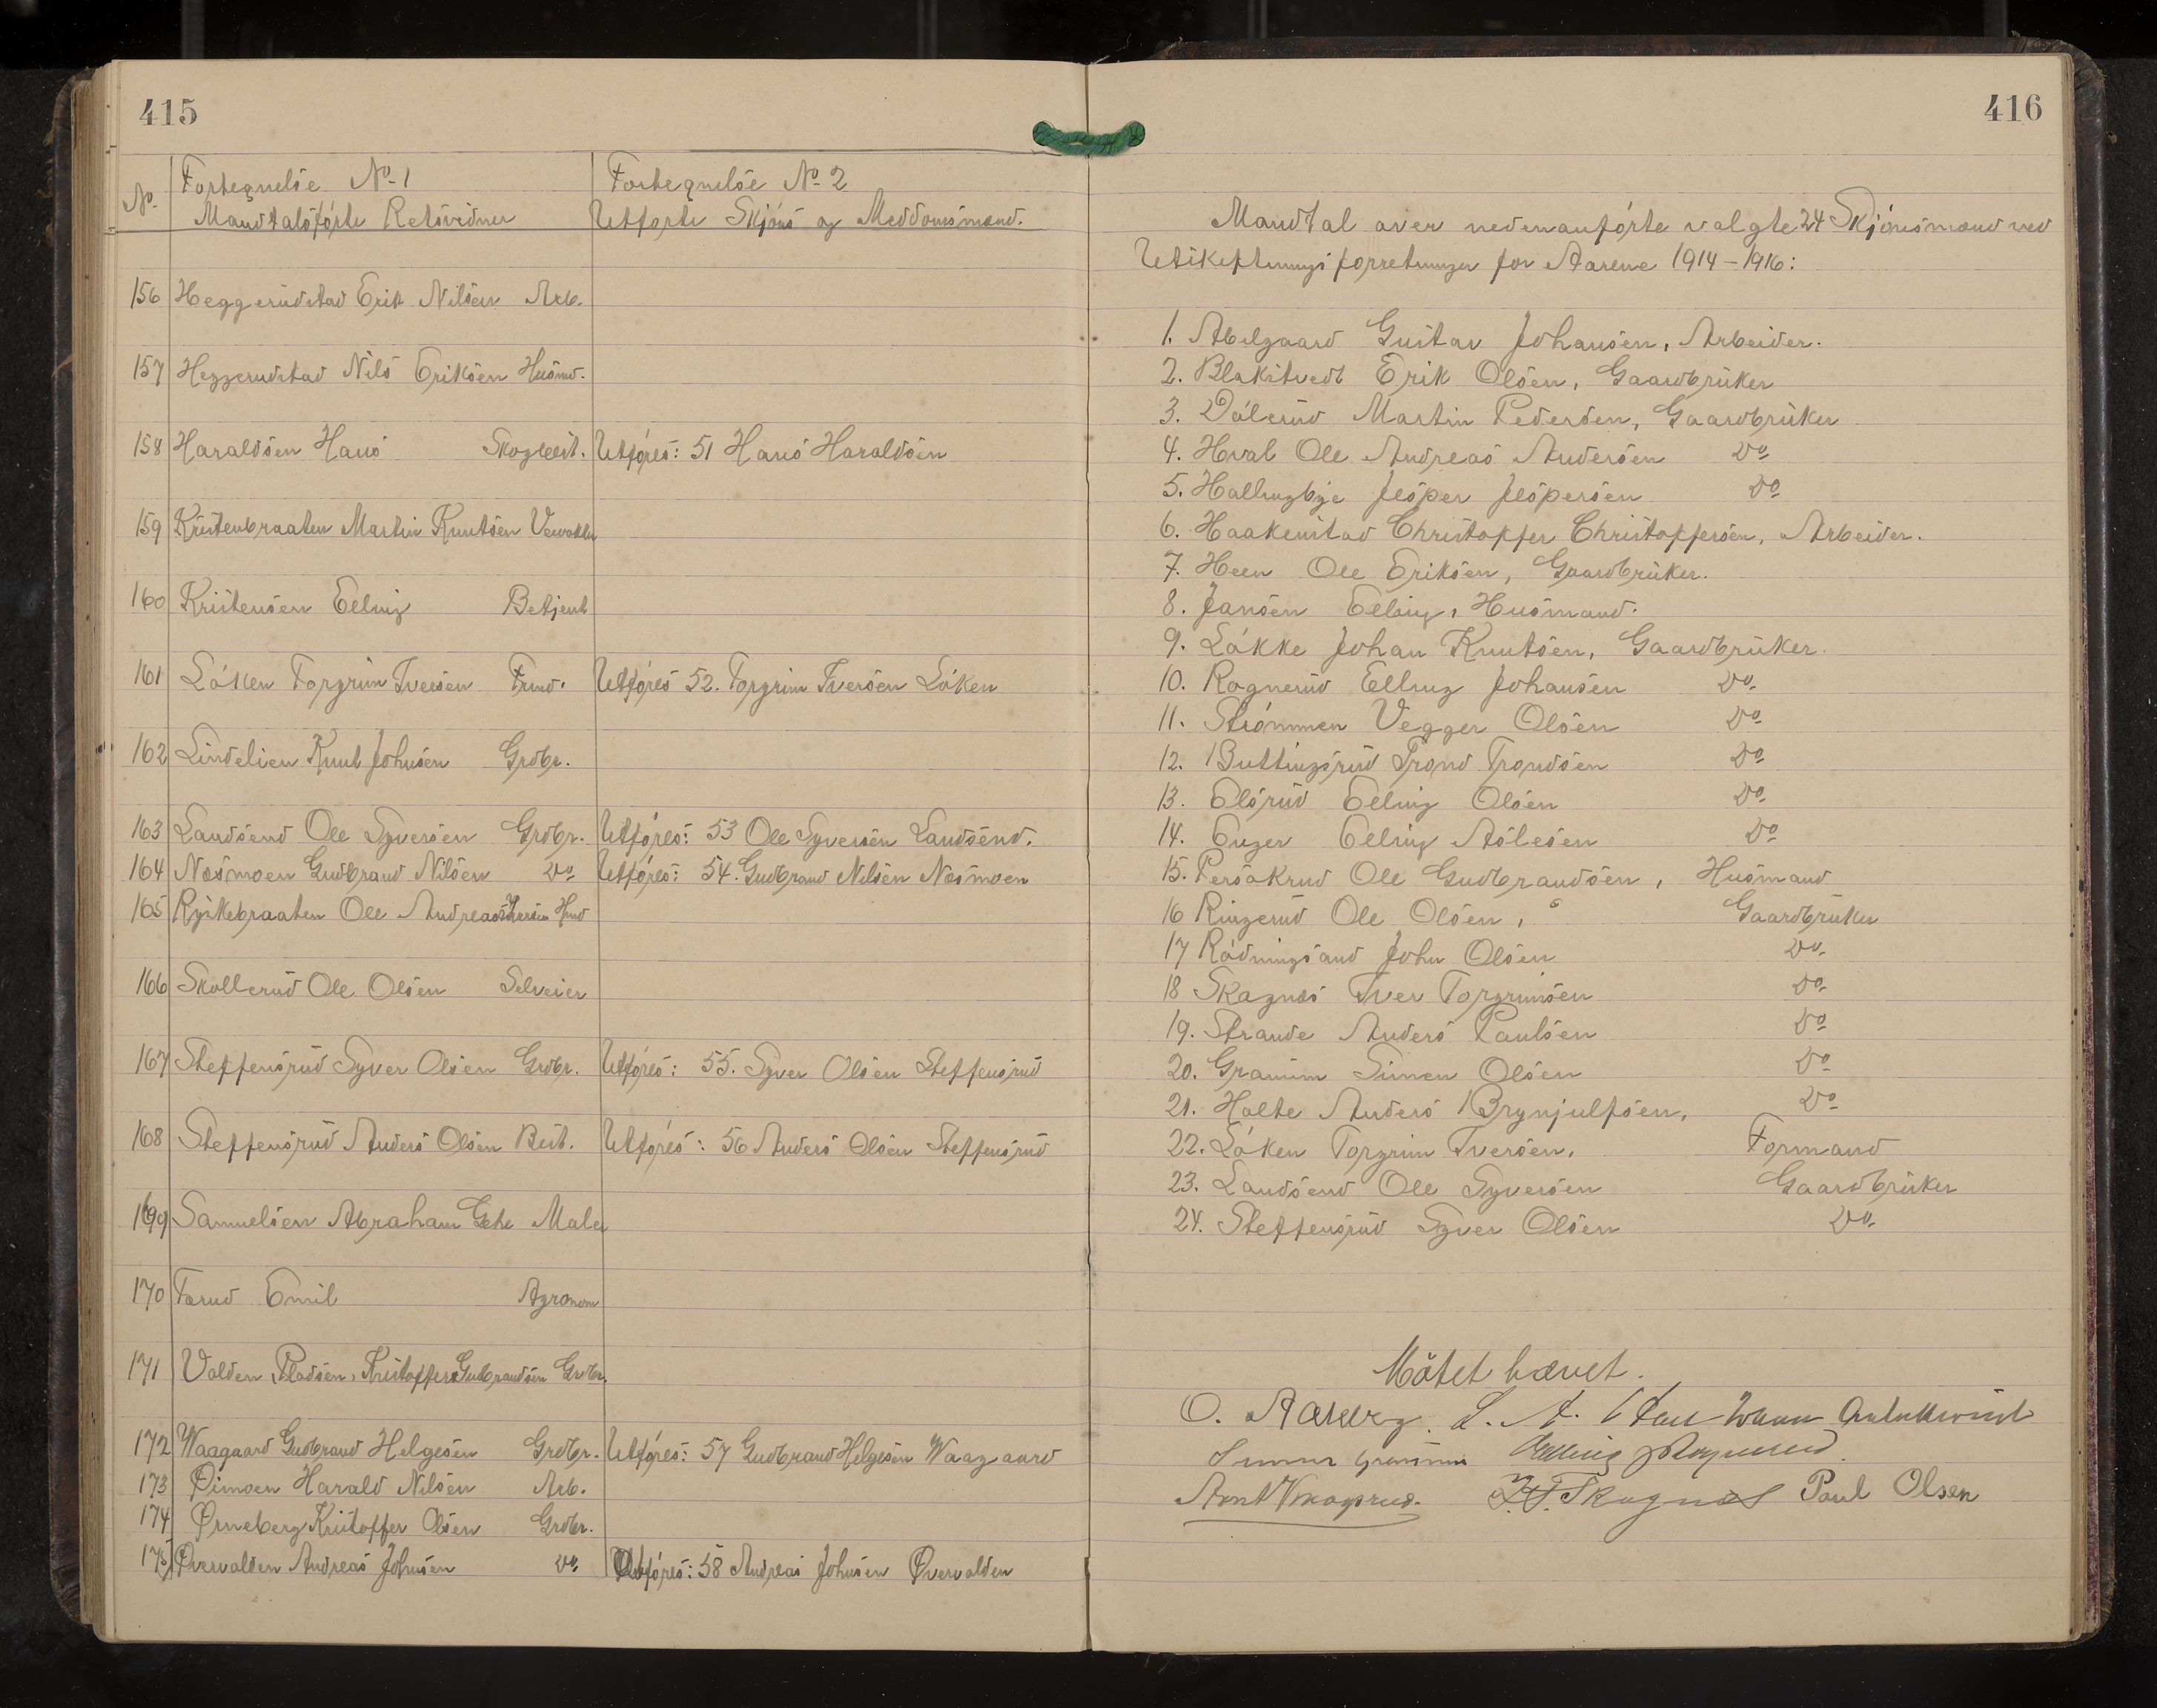 415
No.
Fortegnelse No. 1
Mandtalsførte Retsvidner
Fortegnelse No. 2
Utførte Skjøns og Meddomsmænd.
156 Heggerudstad Erik Nilsen Arb.
157 Heggerudstad Nils Eriksen Husmd.
158 Haraldsen Hans Skogbest. Utføres: 51 Hans Haraldsen
159 Kristenbraaten Martin Knutsen
160 Kristensen Elling Betjent
161 Løken Torgrim Iversen Frmd. Utføres 52. Torgrim Iversen Løken
162 Lindelien Knut Johnsen Grdbr.
163 Landsend Ole Syversen Grdbr. Utføres: 53 Ole Syversen Landsend.
164 Næsmoen Gudbrand Nilsen Do Utføres: 54. Gudbrand Nilsen Næsmoen
165 Rytkebraaten Ole Andreas Hmd
166 Skollerud Ole Olsen Selveier
167 Steffensrud Syver Olsen Grdbr. Utføres: 55. Syver Olsen Steffensrud
168 Steffensrud Anders Olsen Best. Utføres: 56 Anders Olsen Steffensrud
169 Samuelsen Abraham Gehe Maler
170 Tørud Emil Agronom
171 Valden Pladsen, Kristoffer Gulbrandsen Grdbr.
172 Waagaard Gudbrand Helgesen Grdbr. Utføres: 57 Gudbrand Helgesen Waagaard
173 Øimoen Harald Nilsen Arb.
174 Ørneberg Kristoffer Olsen Grdbr.
175 Øvervalden Andreas Johnsen Do Utføres: 58 Andreas Johnsen Øvervalden
416
Mandtal over nedenanførte valgte 24 Skjønsmænd ved
Utskiftningsforretninger for Aarene 1914-1916:
1. Abelgaard Gustav Johansen, Arbeider.
2. Blakstvedt Erik Olsen, Gaardbruker
3. Dølerud Martin Pedersen, Gaardbruker
4. Hval Ole Andreas Andersen Do
5. Hallingbye Jesper Jespersen Do
6. Haakenstad Christoffer Christoffersen, Arbeider.
7. Heen Ole Eriksen, Gaardbruker.
8. Jansen Elling, Husmand.
9. Løkke Johan Knutsen, Gaardbruker.
10. Rognerud Elling Johansen Do
11. Strømmen Vegger Olsen Do
12. Buttingsrud Trond Trondsen Do
13. Elsrud Elling Olsen Do
14. Enger Elling Aslesen Do
15. Persøkrud Ole Gudbrandsen, Husmand
16 Ringerud Ole Olsen, Gaardbruker
17 Rødningsand John Olsen Do
18 Skagnæs Iver Torgrimsen Do
19. Strande Anders Paulsen Do
20. Gramm Simen Olsen Do
21. Holte Anders Brynjulfsen, Do
22. Løken Torgrim Iversen, Formand
23. Landsend Ole Syversen Gaardbruker
24. Steffensrud Syver Olsen Do
Møtet hævet.
O. Aaberg.
Simen Gramm Elling Rognerud
Skagnæs Paul Olsen